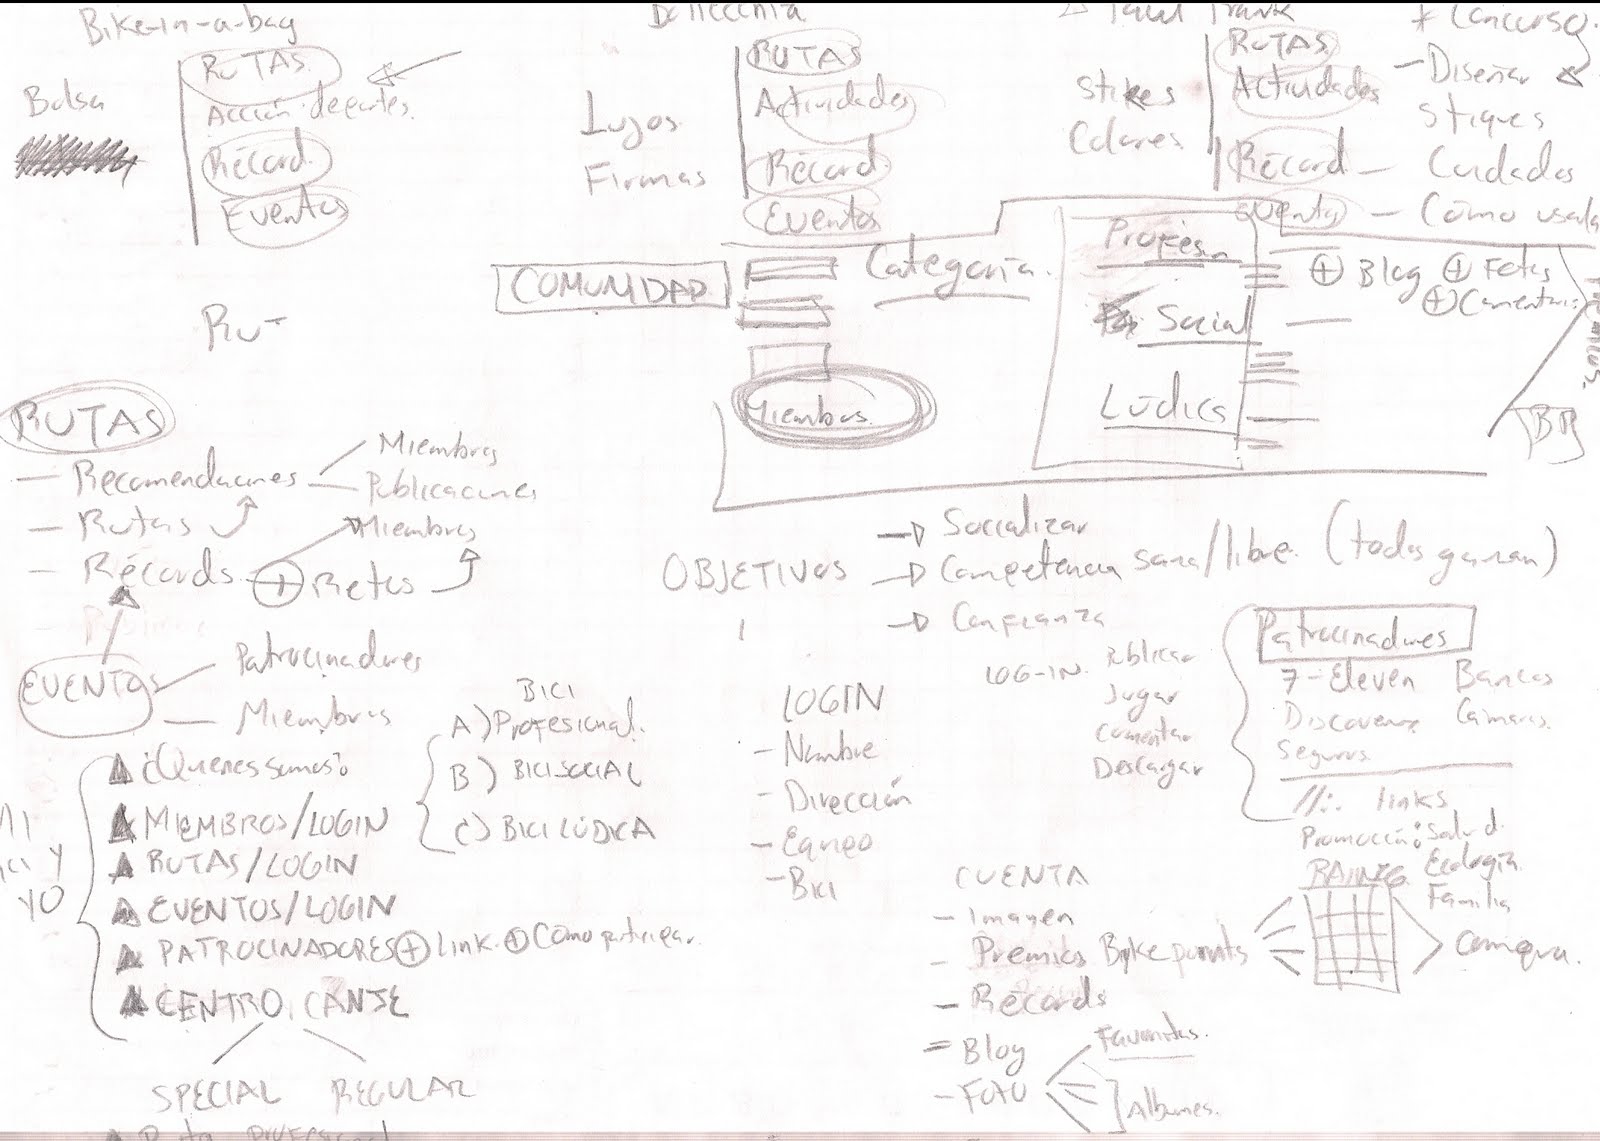 Bike-in-a-bag
Bolsa
RUTAS
Acción deportes.
Récord.
Eventos
Lujos
Firmas
RUTAS
Actividades
Récord.
Eventos
Stikes
Colores
RUTAS
Actividades
Récord
Eventos
* Concurso.
- Diseñar
Stiques
- Cuidados
- Cómo usarla
COMUNIDAD
Categoría.
Miembros.
Profesn
Social
Lúdica
+ Blog + Fotos
+ Comentarios
BP
Rut
RUTAS
- Recomendaciones
- Miembros
- Publicaciones
- Rutas
Miembros
- Récords + Retos
EVENTOS
Patrocinadores
Miembros
OBJETIVOS
Socializar
Competencia sana/libre. (todos ganan)
Confianza
¿Quienes somos?
MIEMBROS/LOGIN
RUTAS/LOGIN
EVENTOS/LOGIN
PATROCINADORES + Link. + Como participar.
CENTRO CANJE
SPECIAL REGULAR
YO
BICI
A) Profesional.
B) BICI SOCIAL
C) BICI LÚDICA
LOGIN
- Nombre
- Dirección
- Equipo
- Bici
LOG-IN.
Publicar
Jugar
Comentar
Descargar
Patrocinadores
7-Eleven Bancos
Discovery Cámaras.
Seguros
links
Promoción: Salud.
Ecología
Familia
CUENTA
- Imagen
- Premios Bykepoints
- Récords
- Blog
- FOTO
Favoritas.
Albumes.